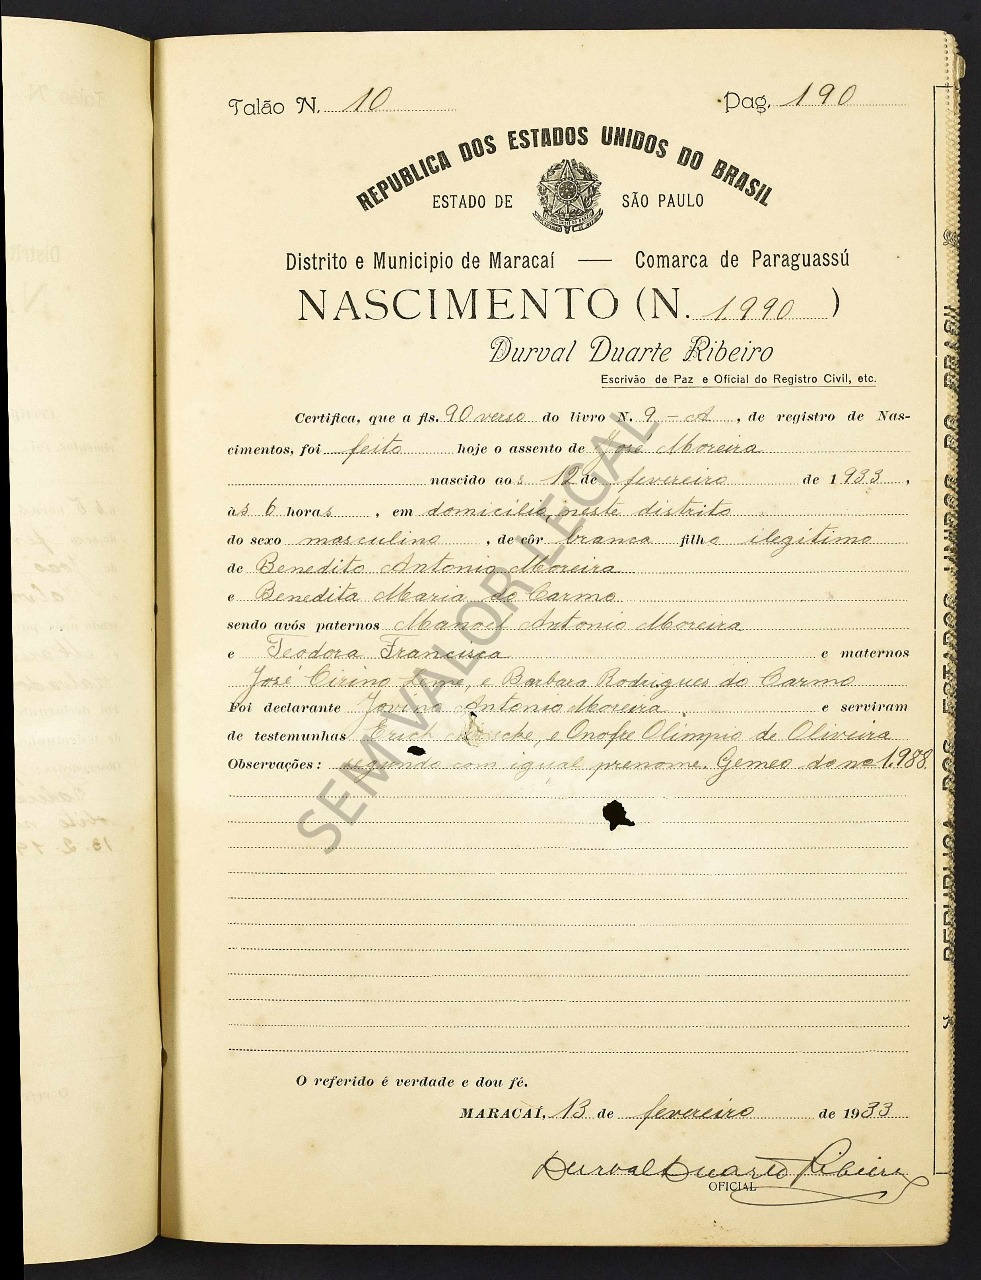 Talão N. 10 Pag. 190
REPUBLICA DOS ESTADOS UNIDOS DO BRASIL
ESTADO DE SÃO PAULO
Distrito e Municipio de Maracaí — Comarca de Paraguassú
NASCIMENTO (N. 1.990 )
Durval Duarte Ribeiro
Escrivão de Paz e Oficial do Registro Civil, etc.
Certifica, que a fls. 90 verso do livro N. 9 - A, de registro de Nas-
cimentos, foi feito hoje o assento de José Moreira
nascido aos 12 de fevereiro de 1933,
às 6 horas, em domicilio, neste distrito
do sexo masculino, de côr branca filho ilegitimo
de Benedito Antonio Moreira
e Benedita Maria do Carmo
sendo avós paternos Manoel Antonio Moreira
e Teodora Francisca e maternos
José Cirino Leme, e Barbara Rodrigues do Carmo
Foi declarante Jovino Antonio Moreira e serviram
de testemunhas Erich, e Onofre Olimpio de Oliveira
Observações: segundo com igual prenome. Gemeo do no 1.988.
O referido é verdade e dou fé.
MARACAÍ, 13 de fevereiro de 1933
Durval Duarte Ribeiro
OFICIAL
SEM VALOR LEGAL
REPUBLICA DOS ESTADOS UNIDOS DO BRASIL